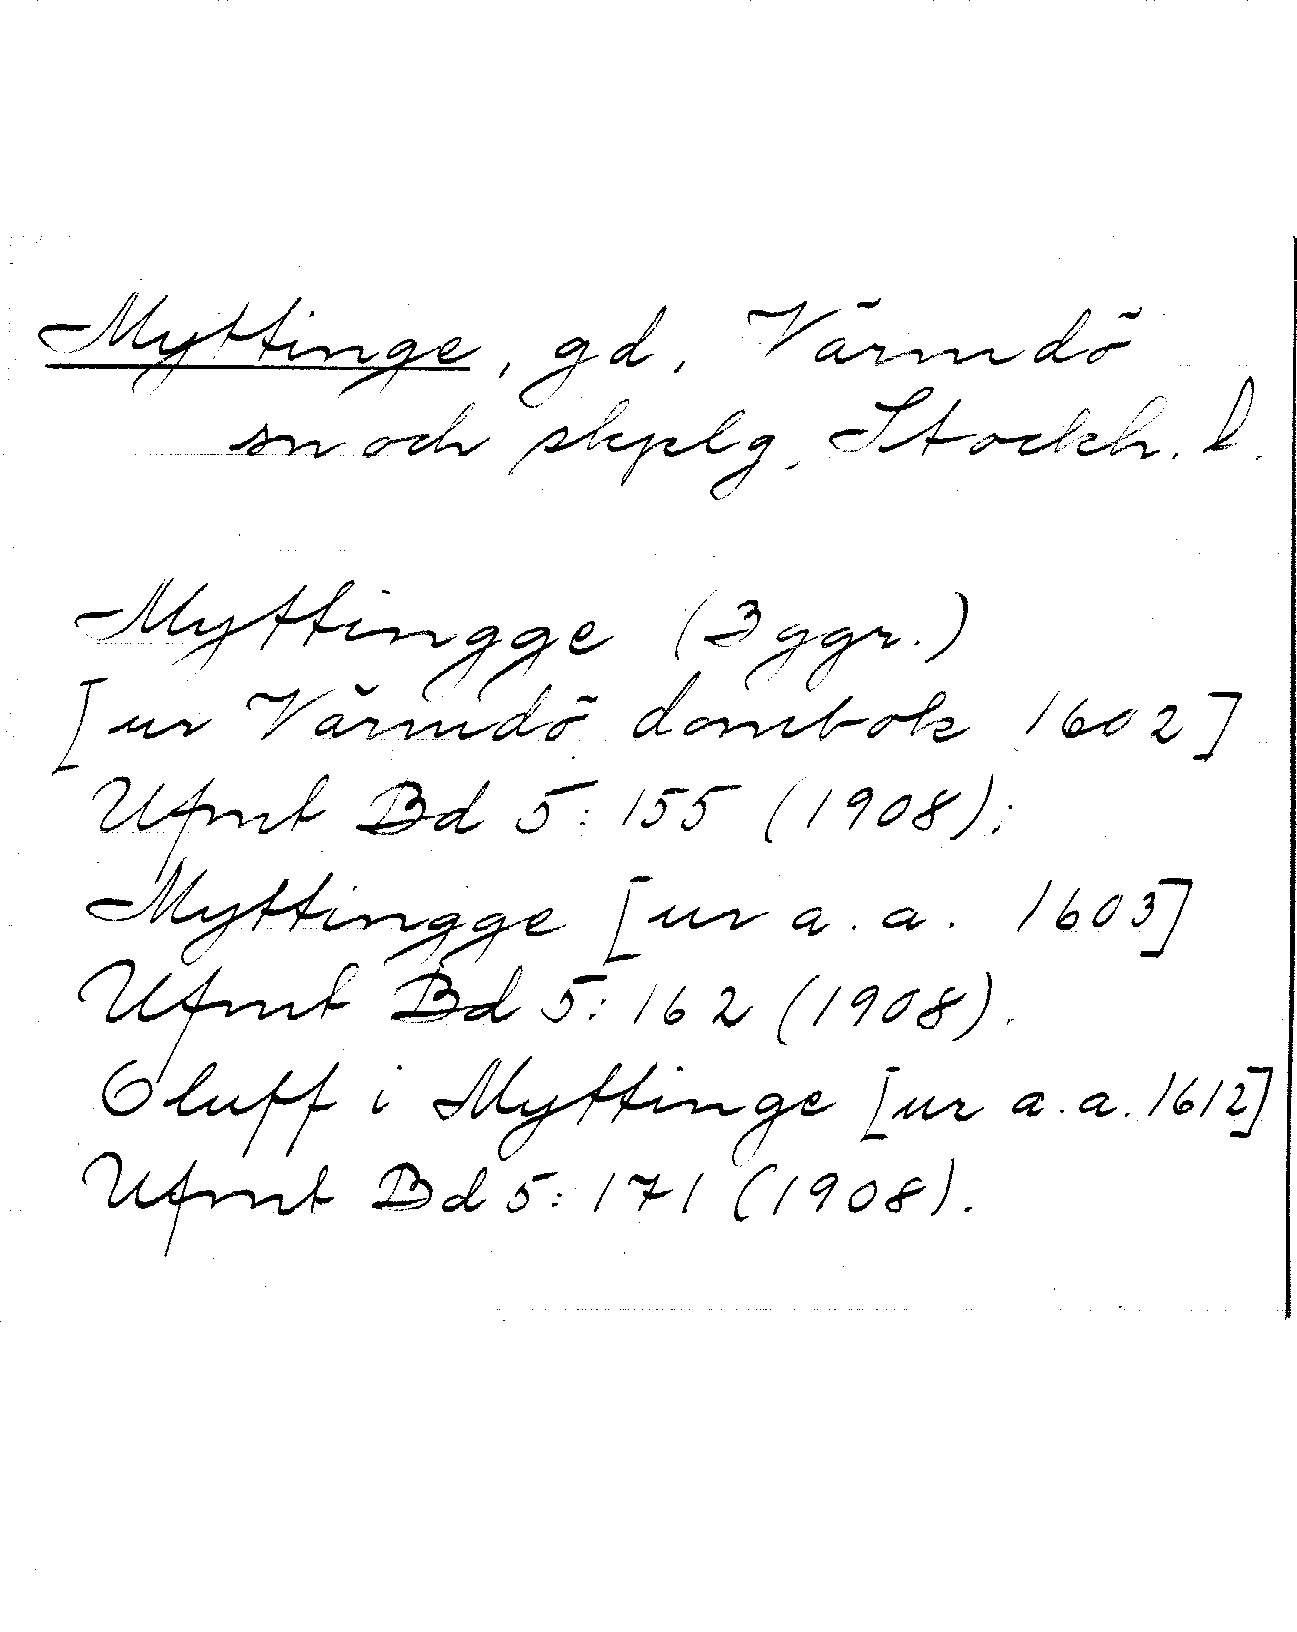 Myttinge, gd, Värmdö
sn och skplg, Stockh. l.
Myttingge (3 ggr.)
[ur Värmdö dombok 1602]
Ufmt Bd 5:155 (1908);
Myttingge [ur a.a. 1603]
Ufmt Bd 5:162 (1908).
Oluff i Myttinge [ur a.a. 1612]
Ufmt Bd 5:171 (1908).